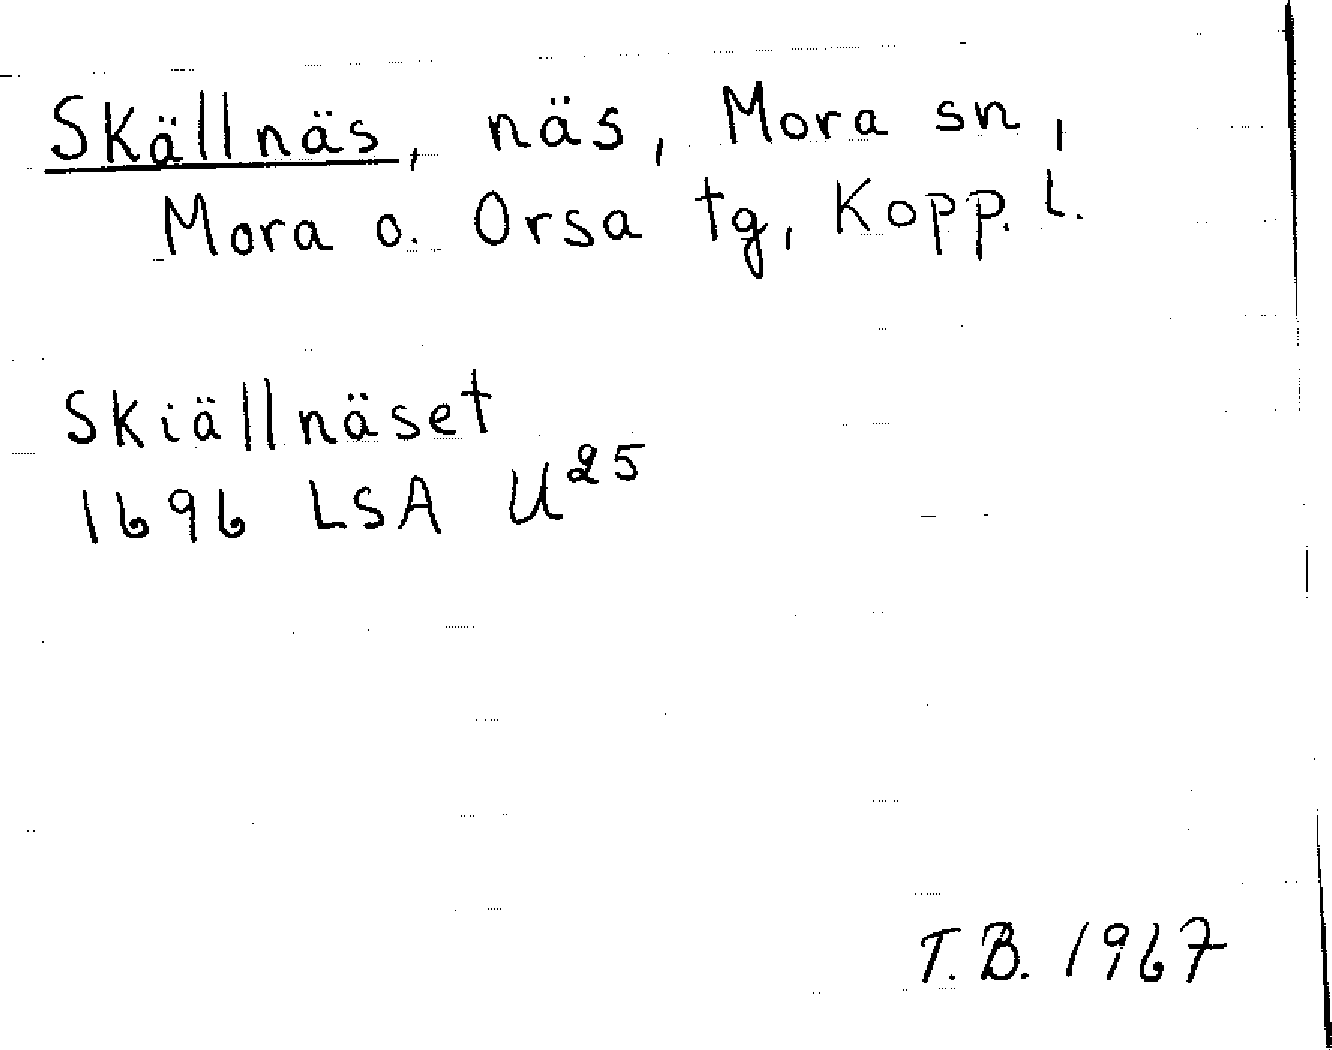 Skällnäs, näs, Mora sn,
Mora o. Orsa tg, Kopp. l.
Skiällnäset
1696 LSA U25
T.B. 1967